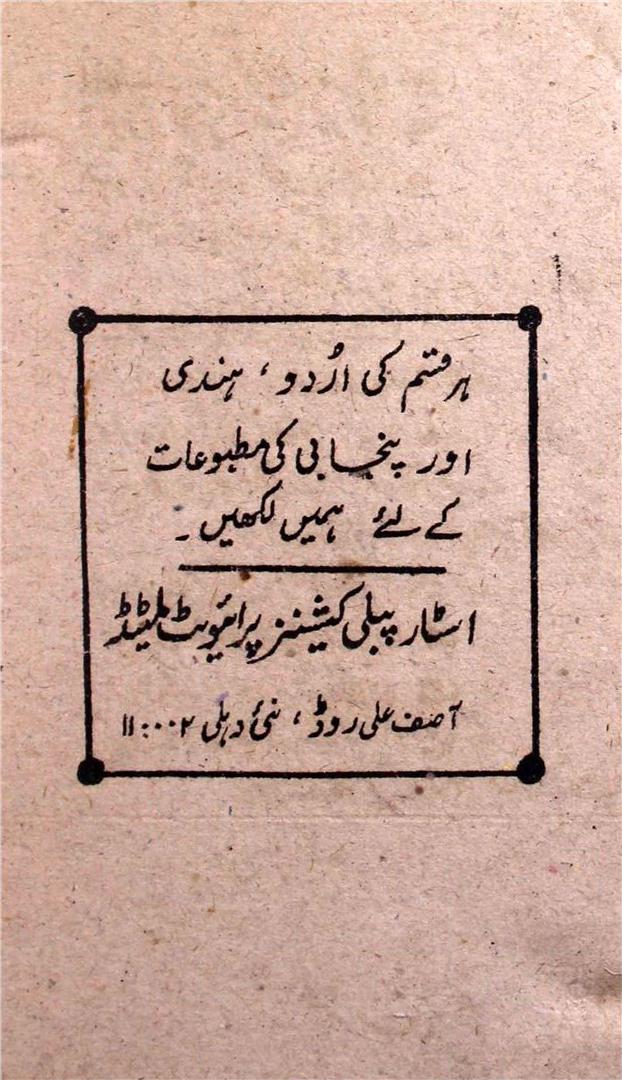 ہر قسم کی اُردو، ہندی
اور پنجابی کی مطبوعات
کے لئے ہمیں لکھیں۔
اسٹار پبلی کیشنز پرائیویٹ لمیٹیڈ
آصف علی روڈ، نئی دہلی ۱۱۰۰۰۲